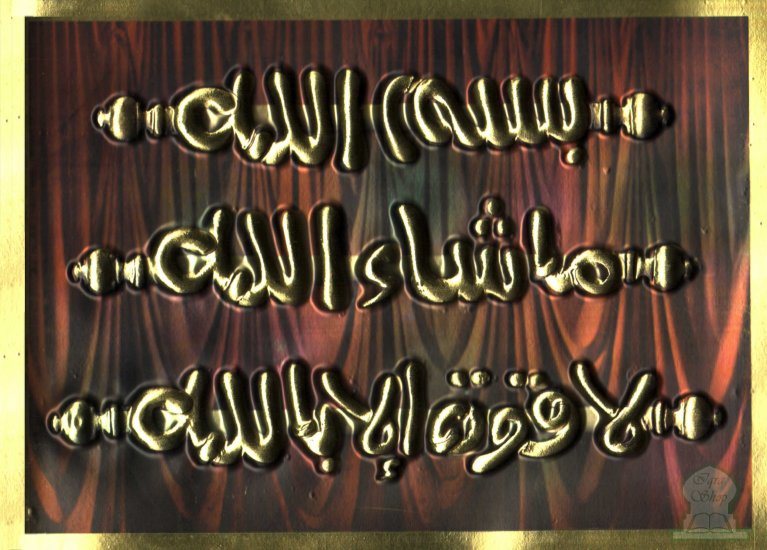 بسم الله
ماشاء الله
لا قوة إلا بالله
Iqra
Shop